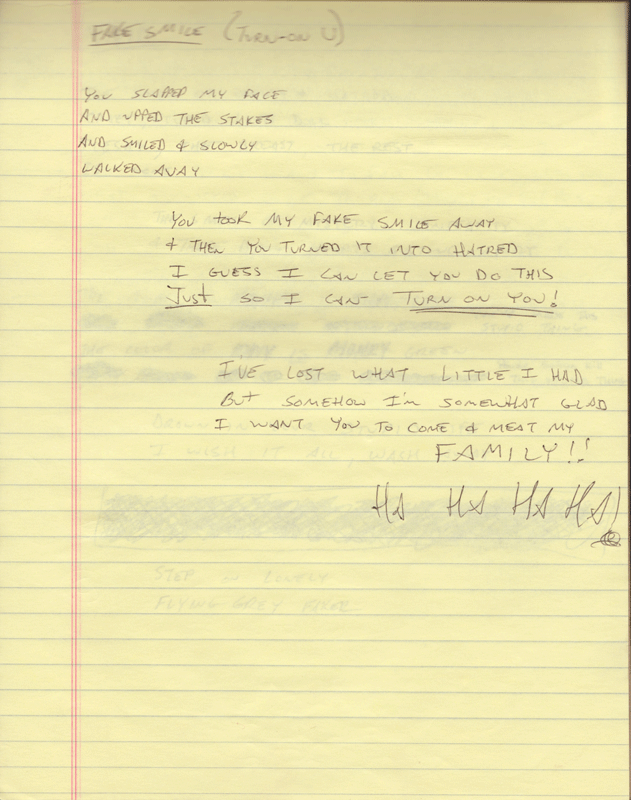 FAKE SMILE (TURN-ON U)
YOU SLAPPED MY FACE
AND UPPED THE STAKES
AND SMILED & SLOWLY
WALKED AWAY
YOU TOOK MY FAKE SMILE AWAY
& THEN YOU TURNED IT INTO HATRED
I GUESS I CAN LET YOU DO THIS
JUST SO I CAN TURN ON YOU!
I'VE LOST WHAT LITTLE I HAD
BUT SOMEHOW I'M SOMEWHAT GLAD
I WANT YOU TO COME & MEAT MY
FAMILY!!
HA HA HA HA!
STEP ON LOVELY